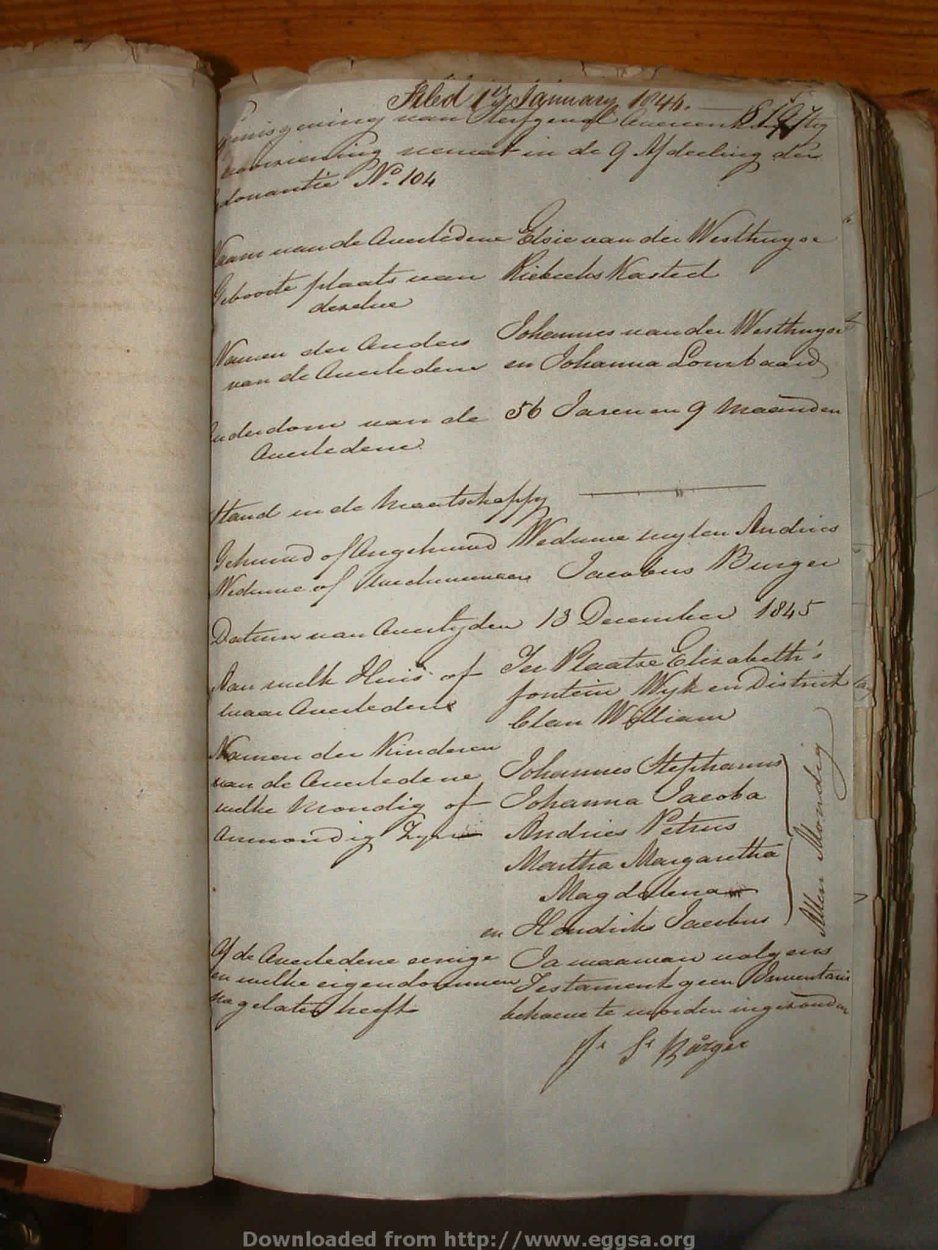 Filed 17 January 1846. 8197
van Sterfgeval overeenkomstig
voorziening vervat in de 9 Afdeeling der
donantie No. 104
Naam van de Overledene Elsie van der Westhuyse
Geboorte plaats van Riebeeks Kasteel
dezelve
Namen der Ouders Johannes van der Westhuyse
van de Overledene en Johanna Lourbaard
Ouderdom van de 56 Jaren en 9 Maanden
Overledene
Stand in de Maatschappy
Gehuwd of Ongehuwd Weduwe wylen Andries
Weduwe of Weduwenaar Jacobus Burger
Datum van Overlyden 13 December 1845
Aan welk Huis of Ter Plaatse Elizabeth's
waar Overleden fontein Wyk en District
Clan William
Namen der Kinderen
van de Overledene Johannes Stephanus
welke Mondig of Johanna Jacoba
Onmondig Zyn Andries Petrus
Martha Margaretha
Magdalena
en Hendrik Jacobus
Allen Mondig
Of de Overledene eenige Ja waarvan volgens
en welke eigendommen Testament geen Inventaris
nagelaten heeft behoeve te worden ingezonden
J. S. Bürger
Downloaded from http://www.eggsa.org